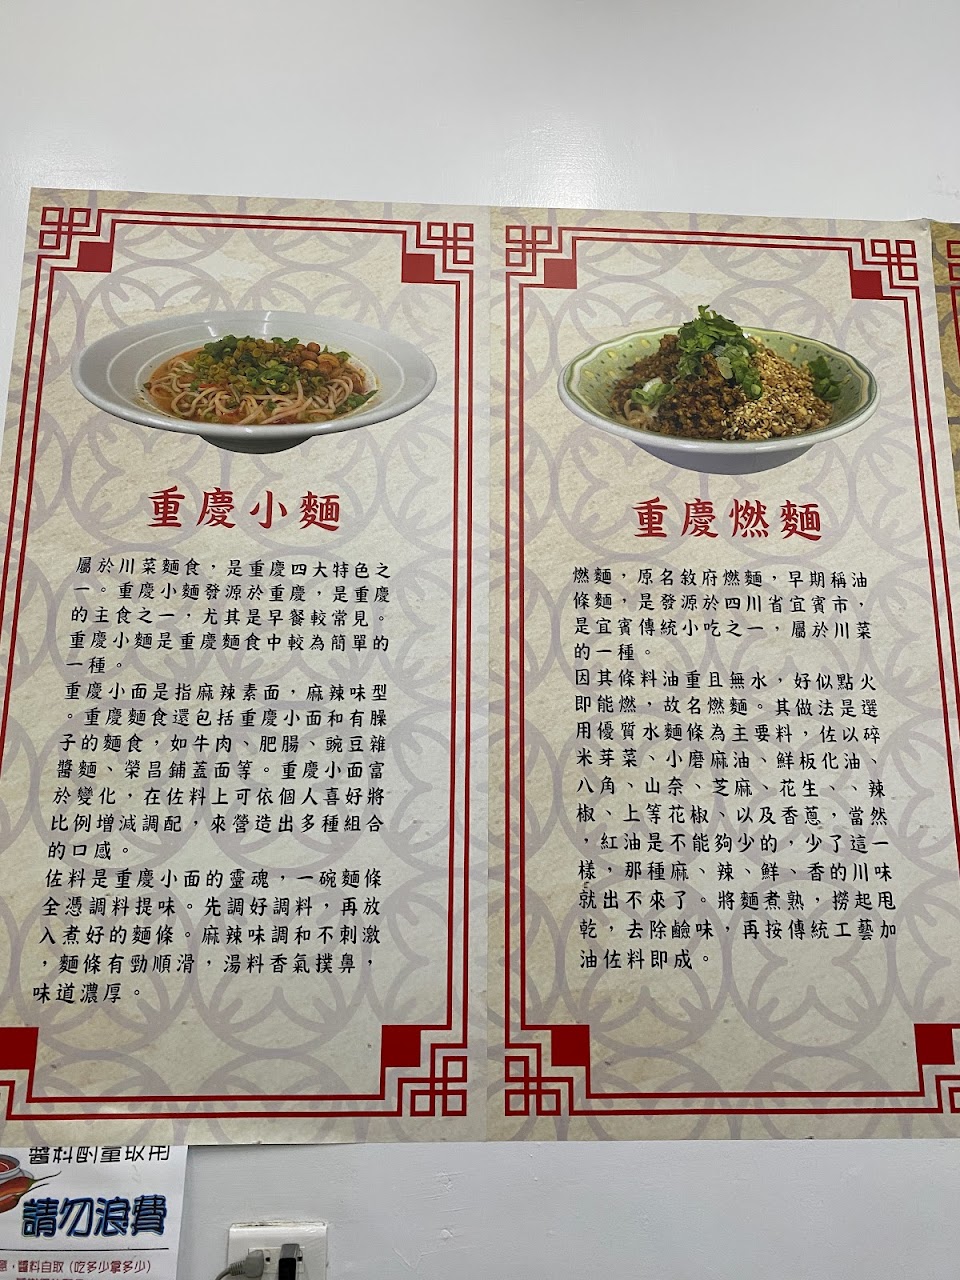 重慶小麵
屬於川菜麵食，是重慶四大特色之
一。重慶小麵發源於重慶，是重慶
的主食之一，尤其是早餐較常見。
重慶小麵是重慶麵食中較為簡單的
一種。
重慶小面是指麻辣素面，麻辣味型
。重慶麵食還包括重慶小面和有臊
子的麵食，如牛肉、肥腸、豌豆雜
醬麵、榮昌鋪蓋面等。重慶小面富
於變化，在佐料上可依個人喜好將
比例增減調配，來營造出多種組合
的口感。
佐料是重慶小面的靈魂，一碗麵條
全憑調料提味。先調好調料，再放
入煮好的麵條。麻辣味調和不刺激
，麵條有勁順滑，湯料香氣撲鼻，
味道濃厚。
重慶燃麵
燃麵，原名敘府燃麵，早期稱油
條麵，是發源於四川省宜賓市，
是宜賓傳統小吃之一，屬於川菜
的一種。
因其條料油重且無水，好似點火
即能燃，故名燃麵。其做法是選
用優質水麵條為主要料，佐以碎
米芽菜、小磨麻油、鮮板化油、
八角、山奈、芝麻、花生、、辣
椒、上等花椒、以及香蔥，當然
，紅油是不能夠少的，少了這一
樣，那種麻、辣、鮮、香的川味
就出不來了。將麵煮熟，撈起甩
乾，去除鹼味，再按傳統工藝加
油佐料即成。
醬料酌量取用
請勿浪費
意，醬料自取（吃多少拿多少）